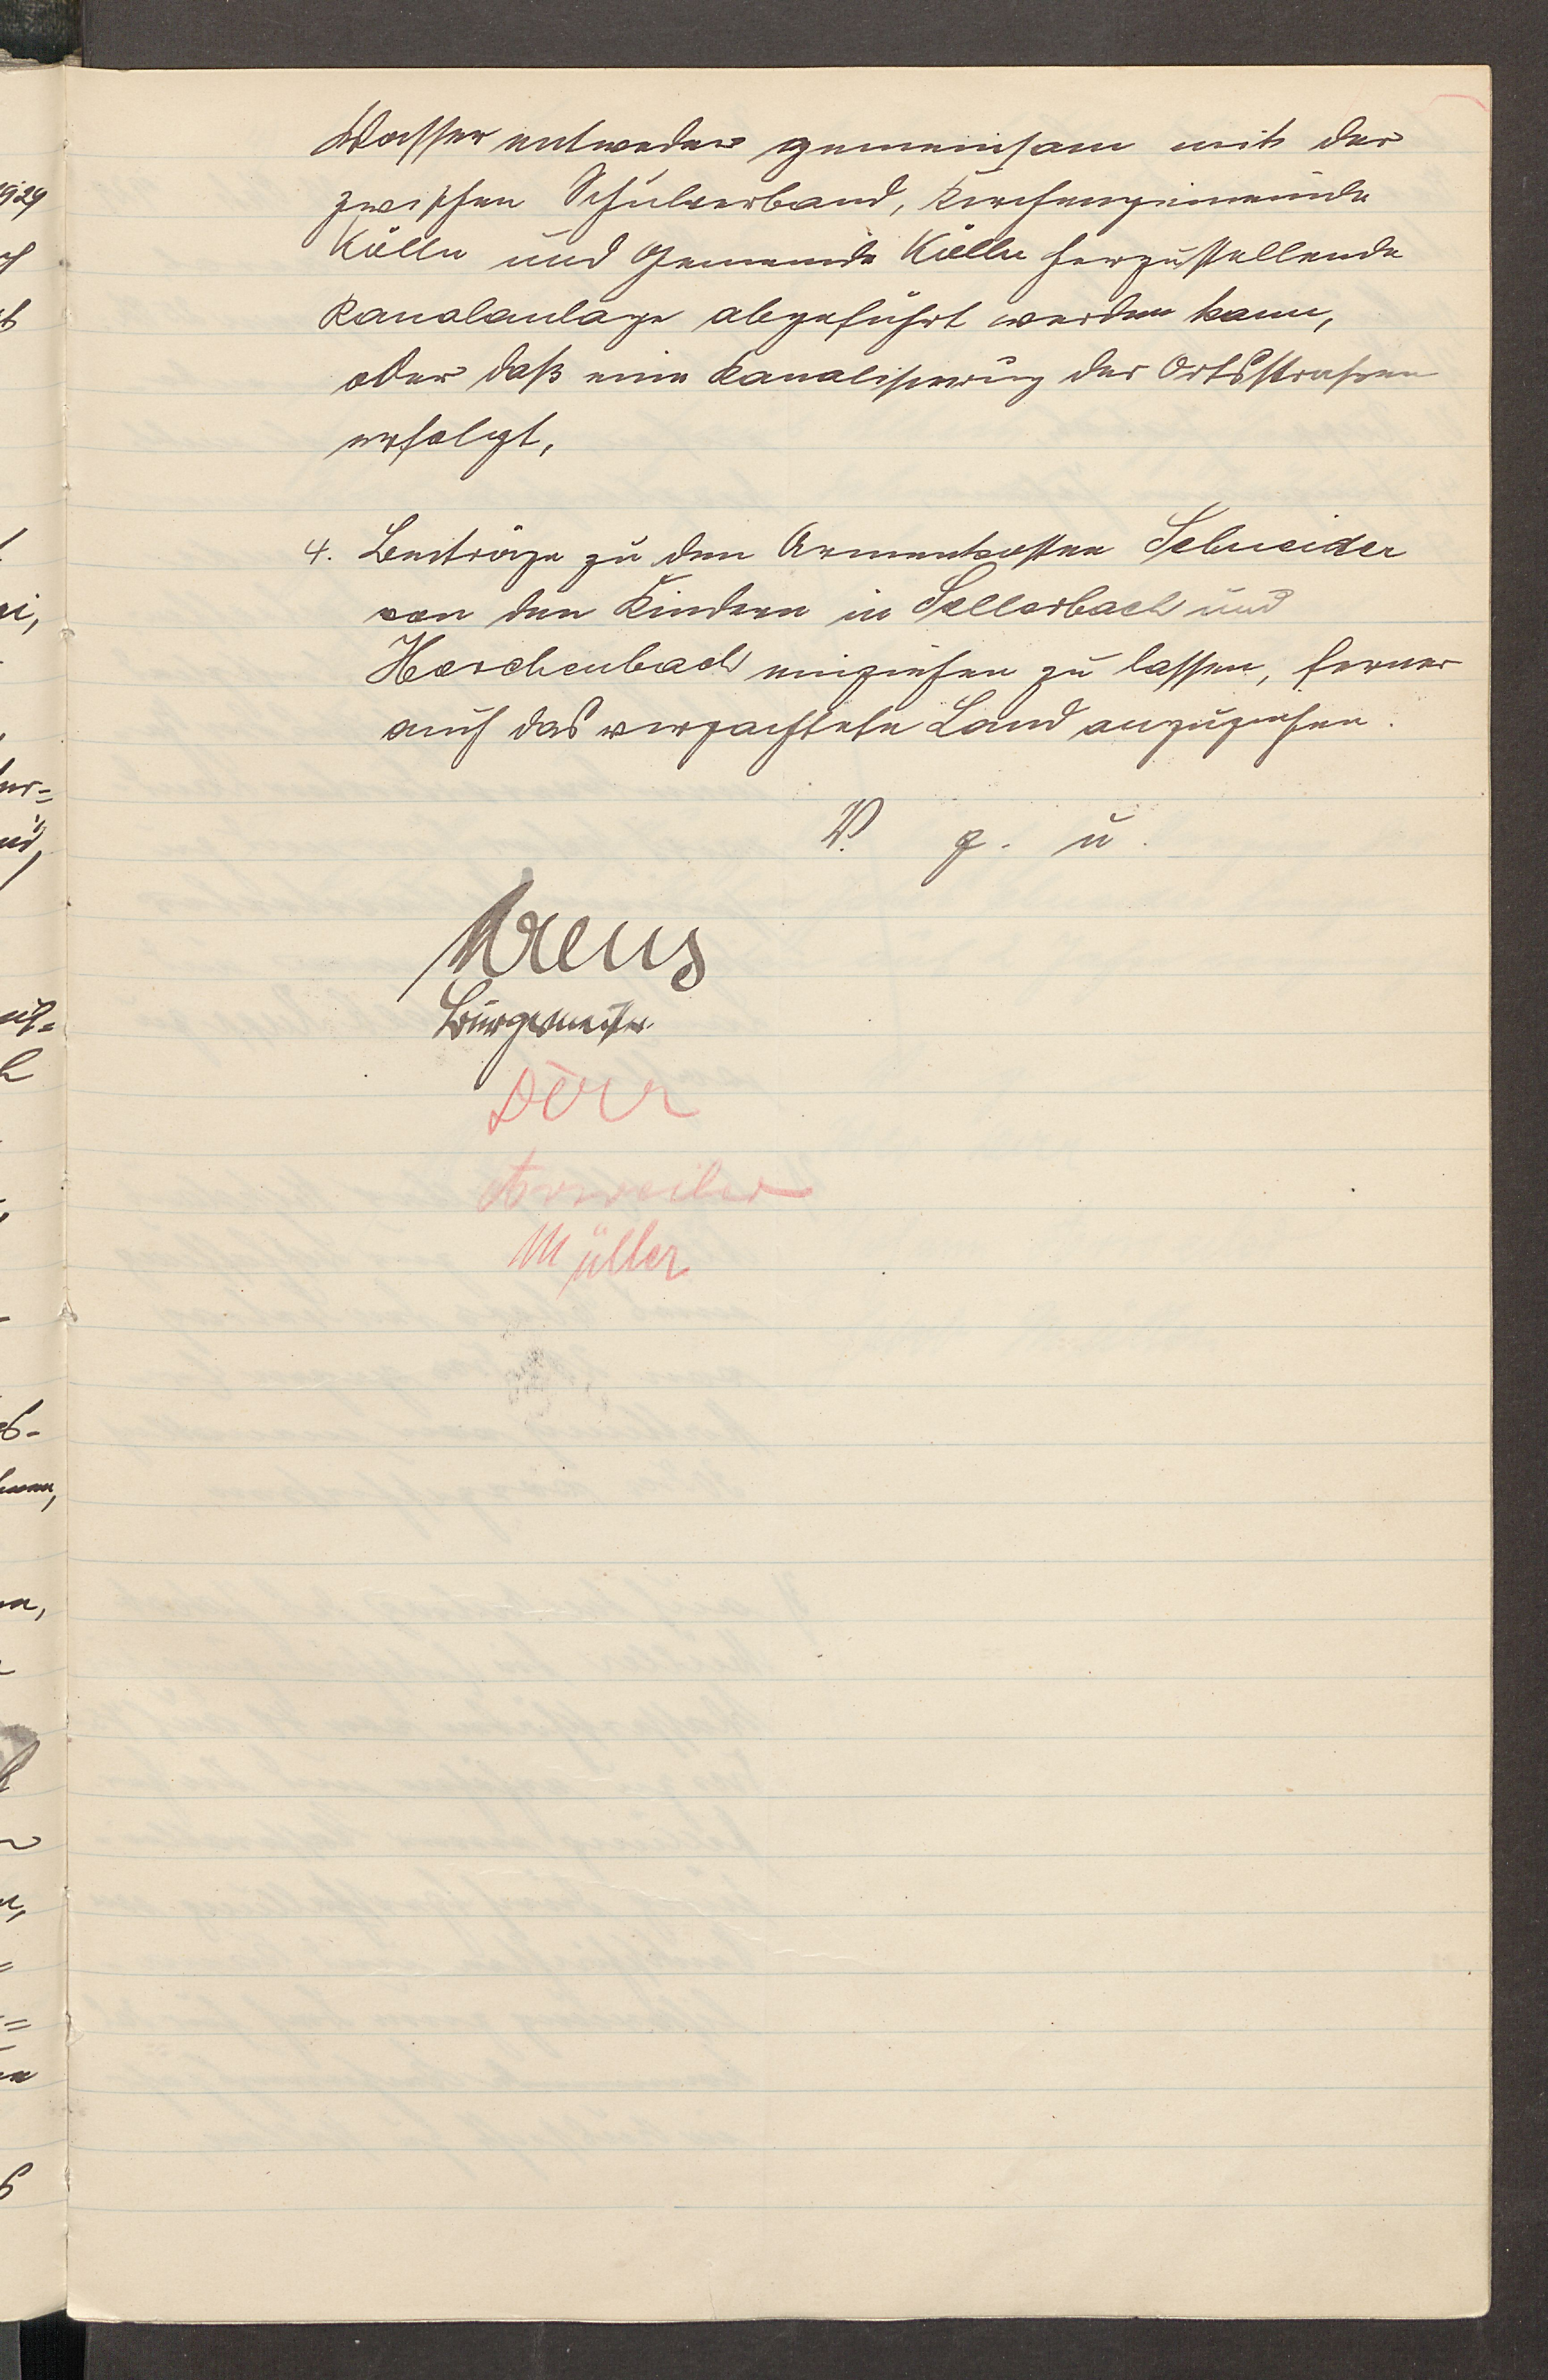 Wasser entweder gemeinsam mit der
zwischen Schulverband, Kirchengemeinde
Kölln und Gemeinde Kölln herzustellende
Kanalanlage abgeführt werden kann,
oder daß eine Kanalisierung der Ortsstrassen
erfolgt,
4. Beiträge zu den Armenkosten Schneider
von den Kindern in Sellerbach und
Herchenbach einziehen zu lassen, ferner
auch das verpachtete Land anzuziehen.
V. g. u.
Bürgermeister
Dörr
Arweiler
Müller
1929